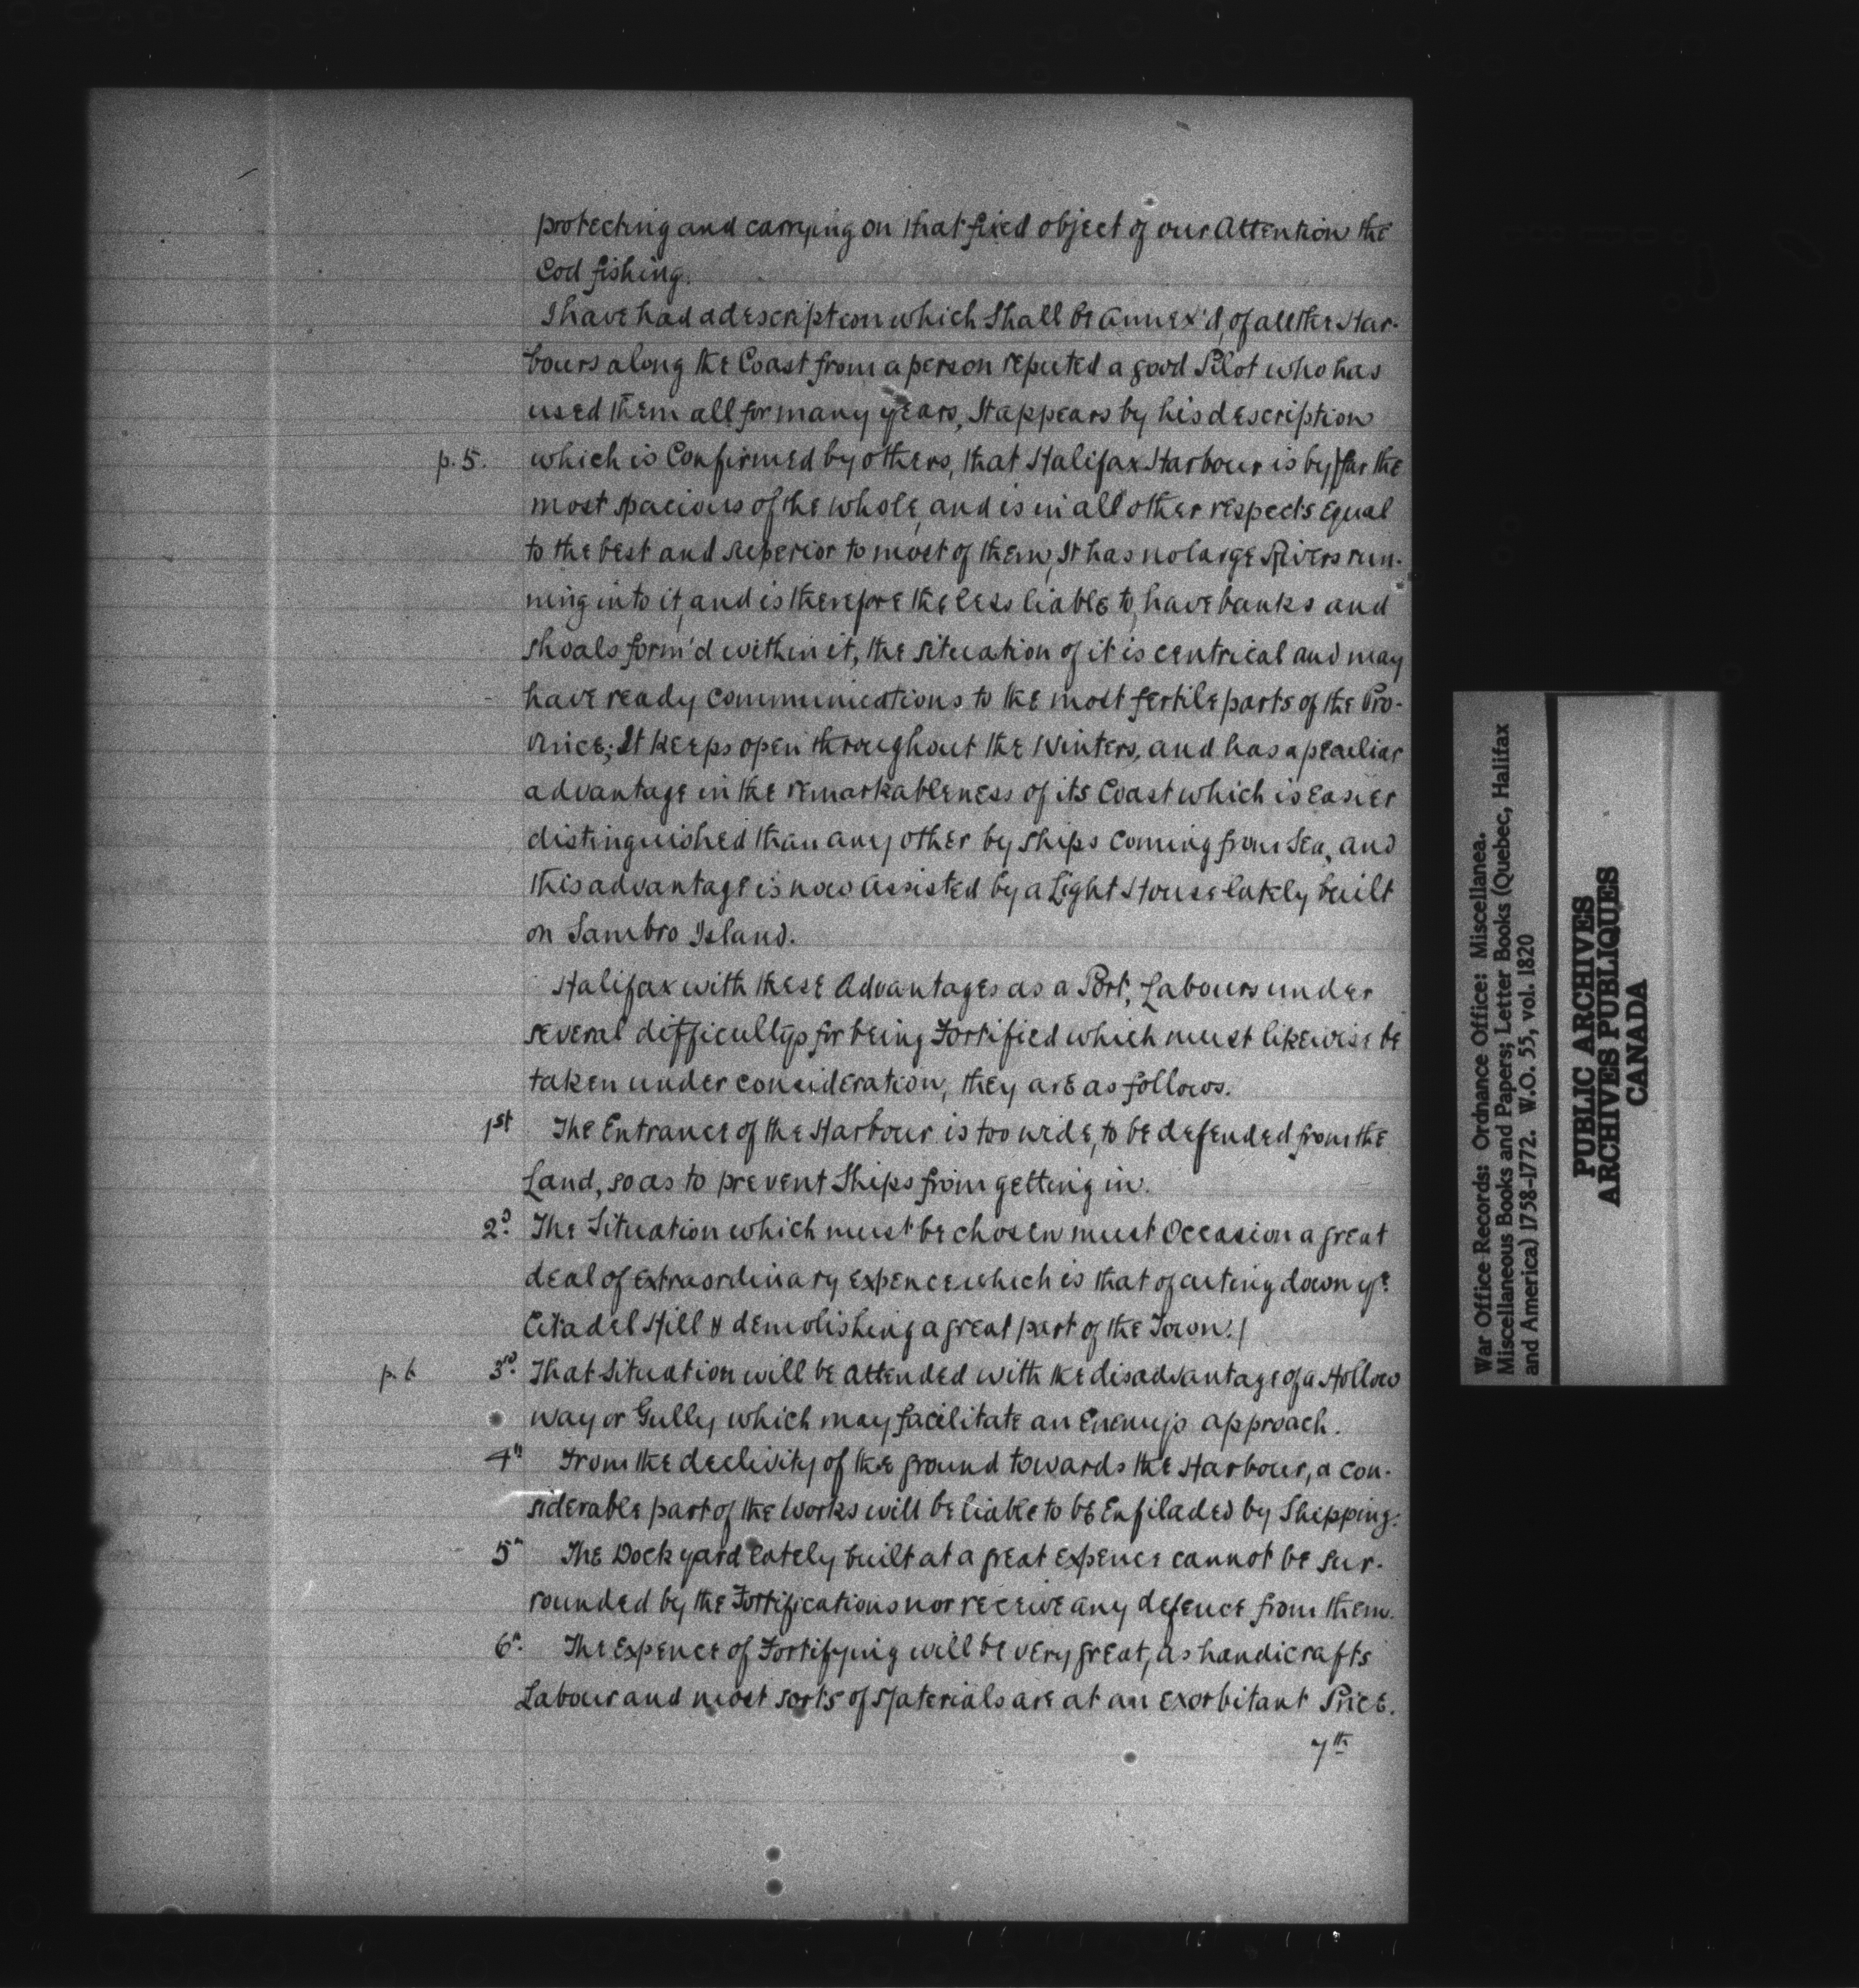 protecting and carrying on that fixed object of our Attention the
Cod fishing.
I have had a description which Shall be Annex'd, of all the Har-
bours along the Coast from a person reputed a good Pilot who has
used them all for many years, It appears by his description
p. 5. which is Confirmed by others, that Halifax Harbour is by/far the
most spacious of the whole, and is in all other respects Equal
to the best and superior to most of them, It has no large Rivers run-
ning into it, and is therefore the less liable to, have banks and
shoals form'd within it, the situation of it is centrical and may
have ready communications to the most fertile parts of the Pro-
vince; It keeps open throughout the Winters, and has a peculiar
advantage in the remarkableness of its Coast which is Easier
distinguished than any other by ships Coming from Sea, and
this advantage is now Assisted by a Light House lately built
on Sambro Island.
Halifax with these Advantages as a Port, Labours under
several difficultys for being Fortified which must likewise be
taken under consideration, they are as follows.
1st The Entrance of the Harbour is too wide, to be defended from the
Land, so as to prevent Ships from getting in.
2d. The Situation which must be chosen must Occasion a great
deal of Extraordinary Expence which is that of cuting down ye.
Citadel Hill & demolishing a great part of the Town./
p. 6 3rd. That Situation will be Attended with the disadvantage of a Hollow
way or Gully which may facilitate an Enemys approach.
4th From the declivity of the ground towards the Harbour, a con-
siderable part of the Works will be liable to be Enfiladed by Shipping.
5th The Dock yard lately built at a great Expence cannot be sur-
rounded by the Fortifications nor receive any defence from them.
6th. The Expence of Fortifying will be very great, as handicrafts
Labour and most sorts of Materials are at an exorbitant Price.
7th
War Office Records: Ordnance Office: Miscellanea.
Miscellaneous Books and Papers; Letter Books (Quebec, Halifax
and America) 1758-1772. W.O. 55, vol. 1820
PUBLIC ARCHIVES
ARCHIVES PUBLIQUES
CANADA